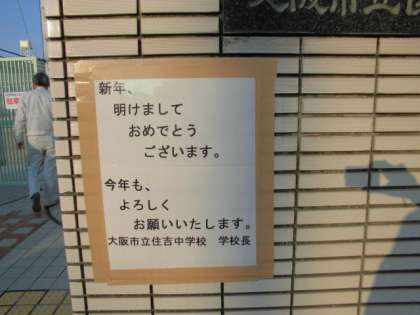 大阪市立住
新年、
明けまして
おめでとう
ございます。
今年も、
よろしく
お願いいたします。
大阪市立住吉中学校 学校長